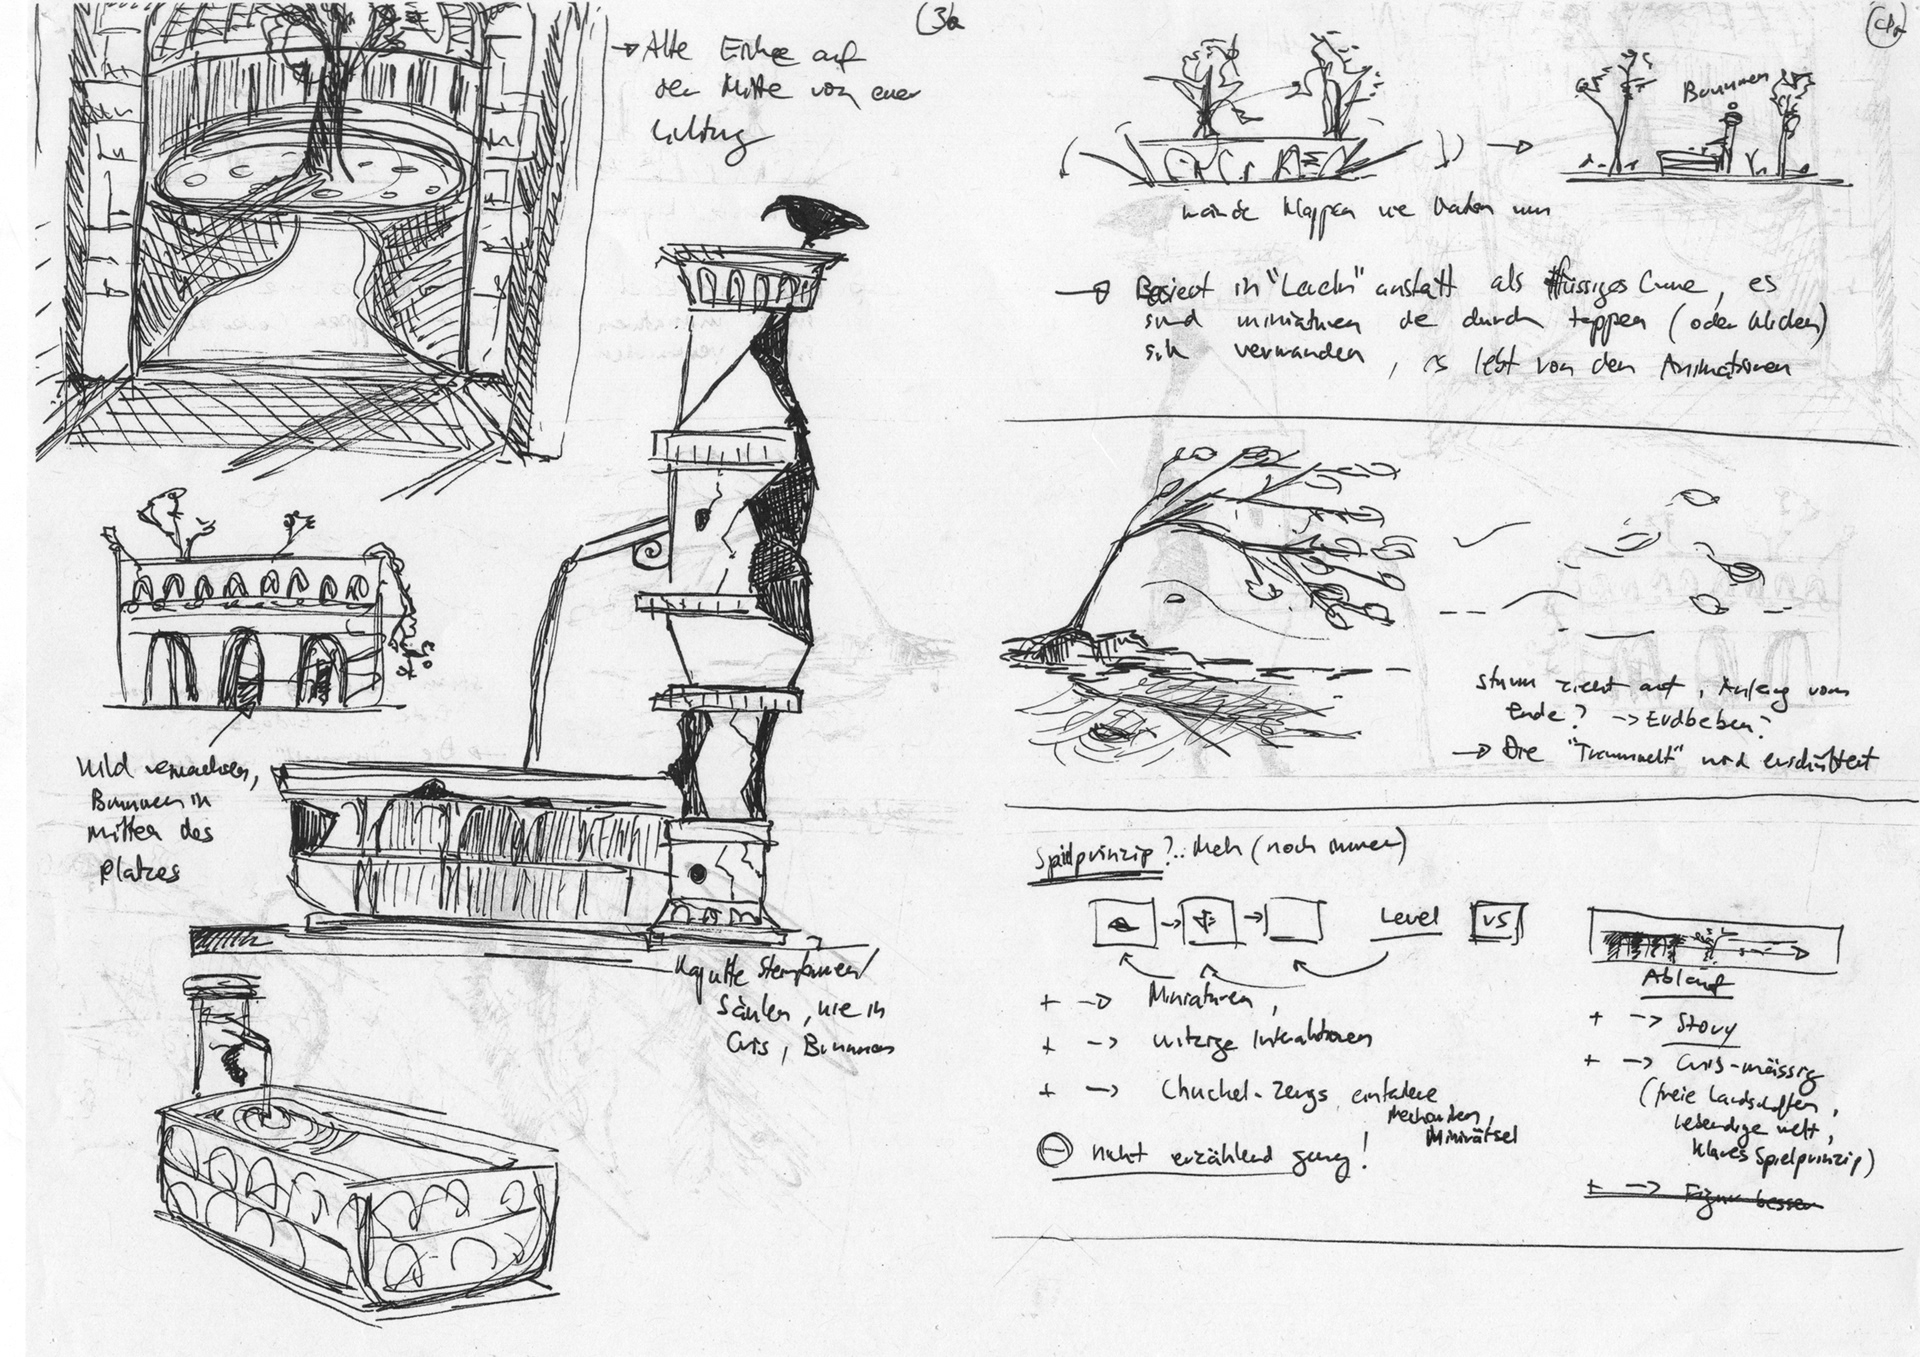 → Alte Eiche auf
der Mitte von einer
Lichtung
Wild verwachsen,
Brunnen in
mitten des
Platzes
Kaputte Steinbrunnen/
Säulen, wie in
Gris, Brunnen
Brunnen
Wände klappen wie Karten um
→ Basiert in "Lacken" anstatt als flüssiges Game, es
sind miniaturen die durch tappen (oder klicken)
sich verwandeln, es lebt von den Animationen
Sturm zieht auf, Anfang vom
Ende? → Erdbeben?
→ Die "Traumwelt" wird erschüttert
Spielprinzip?.. Meh (noch immer)
Level
VS
+ → Miniaturen,
+ → witzige Interaktionen
+ → Chuchel-Zeugs, einfache
Mechaniken,
Minirätsel
⊖ nicht erzählend genug!
Ablauf
+ → Story
+ → Gris-mässig
(freie Landschaften,
lebendige Welt,
klares Spielprinzip)
+ → Figur besser